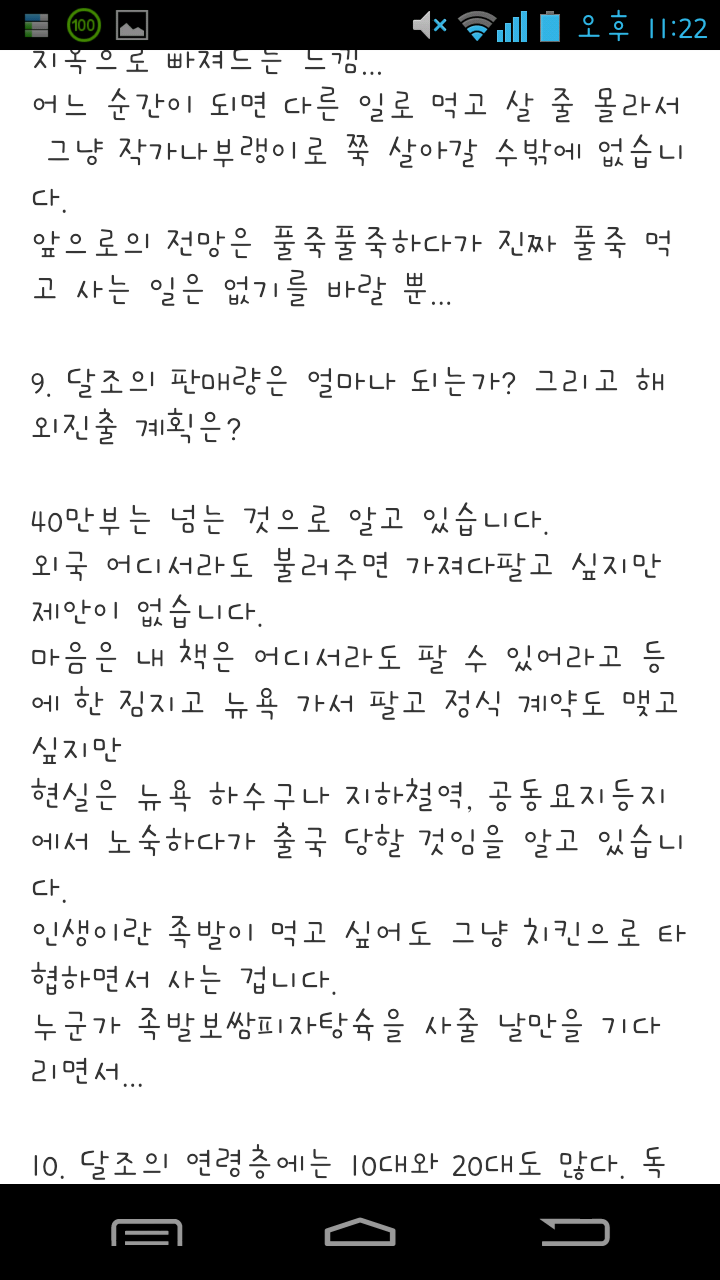 100
오후 11:22
지옥으로 빠져드는 느낌...
어느 순간이 되면 다른 일로 먹고 살 줄 몰라서
그냥 작가나부랭이로 쭉 살아갈 수밖에 없습니
다.
앞으로의 전망은 풀죽풀죽하다가 진짜 풀죽 먹
고 사는 일은 없기를 바랄 뿐...
9. 달조의 판매량은 얼마나 되는가? 그리고 해
외진출 계획은?
40만부는 넘는 것으로 알고 있습니다.
외국 어디서라도 불러주면 가져다팔고 싶지만
제안이 없습니다.
마음은 내 책은 어디서라도 팔 수 있어라고 등
에 한 짐지고 뉴욕 가서 팔고 정식 계약도 맺고
싶지만
현실은 뉴욕 하수구나 지하철역, 공동묘지등지
에서 노숙하다가 출국 당할 것임을 알고 있습니
다.
인생이란 족발이 먹고 싶어도 그냥 치킨으로 타
협하면서 사는 겁니다.
누군가 족발보쌈피자탕슉을 사줄 날만을 기다
리면서...
10. 달조의 연령층에는 10대와 20대도 많다. 독